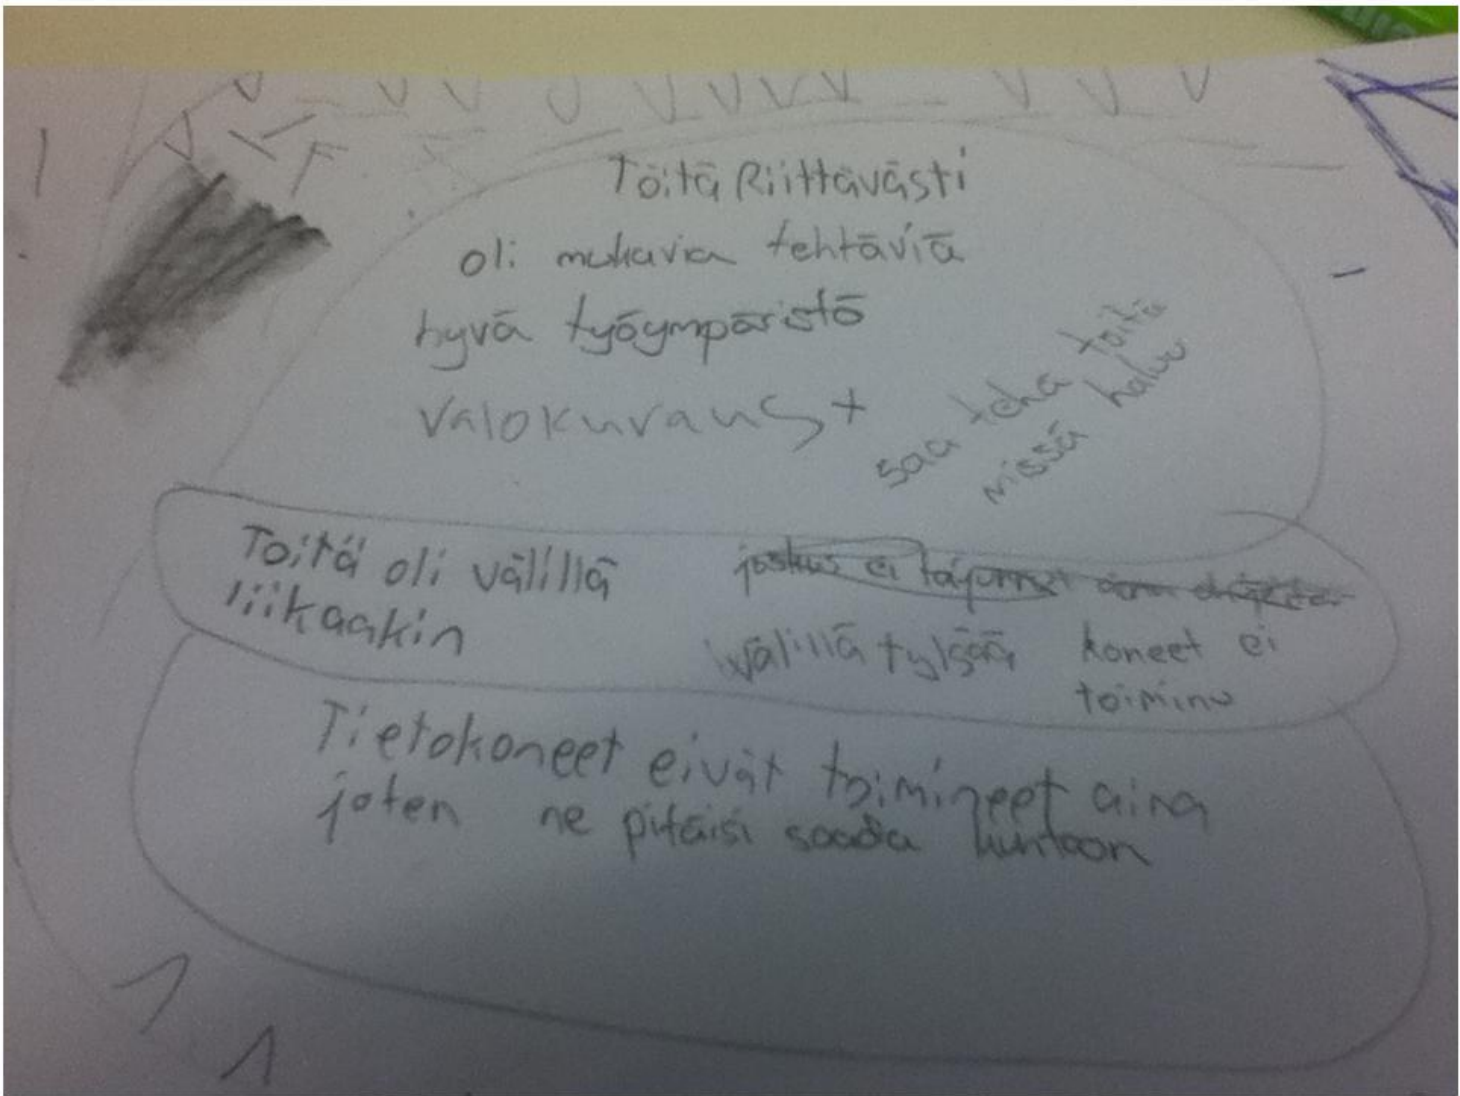 Töitä Riittävästi
oli mukavia tehtäviä
hyvä työympäristö
valokuvaus +
saa tehä töitä
missä haluu
Töitä oli välillä
liikaakin
joskus ei
välillä tylsää
koneet ei
toiminu
Tietokoneet eivät toimineet aina
joten ne pitäisi saada kuntoon